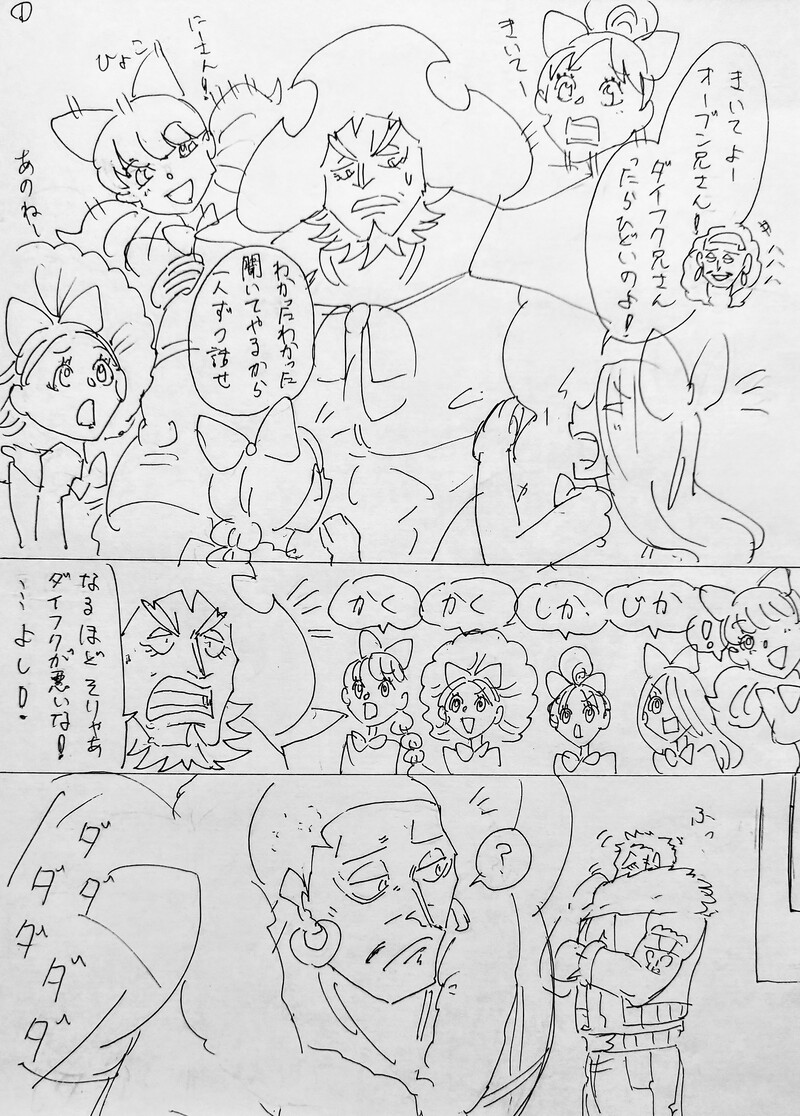 ①
きいてよー
オーブン兄さん!
ダイフク兄さん
ったらひどいのよ!
きいてー
にーさん!
ぴょこ
あのねー
わかったわかった
聞いてやるから
一人ずつ話せ
じか
しか
かく
かく
!
なるほどそりゃあ
ダイフクが悪いな!
…よし!
ふっ…
?
ダ
ダ
ダ
ダ
ダ
ダ